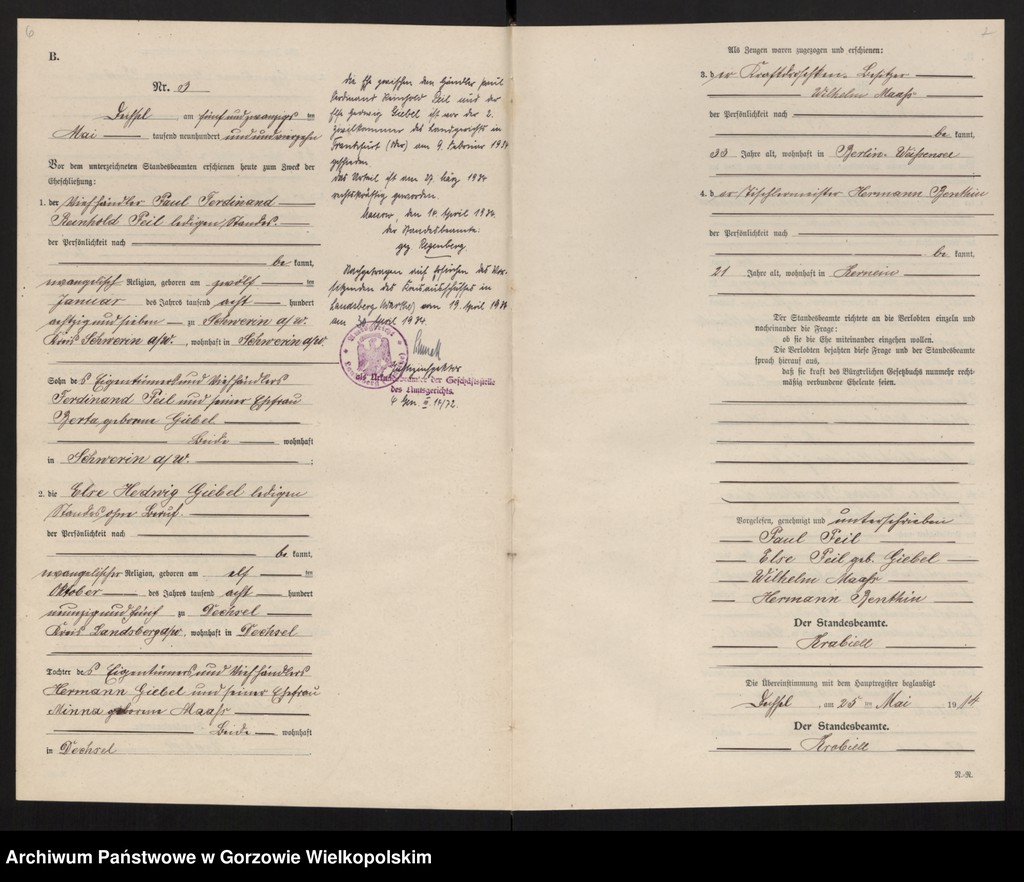 6
B.
Nr. 3
Dechsel, am fünfundzwanzigs ten
Mai tausend neunhundert undundvierzehn
Vor dem unterzeichneten Standesbeamten erschienen heute zum Zweck der
Eheschließung:
1. der Viehhändler Paul Ferdinand
Reinhold Peil ledigen Standes.
der Persönlichkeit nach
be kannt,
evangelisch Religion, geboren am zwölf ten
Januar des Jahres tausend acht hundert
achtzigundsieben zu Schwerin a/W.
Kreis Schwerin a/W., wohnhaft in Schwerin a/W
Sohn des Eigentümers und Viehhändlers
Ferdinand Peil und seiner Ehefrau
Berta geborene Giebel
Beide wohnhaft
in Schwerin a/W. ;
2. die Else Hedwig Giebel ledigen
Standes ohne Beruf
der Persönlichkeit nach
be kannt,
evangelischer Religion, geboren am elf ten
Oktober des Jahres tausend acht hundert
neunzigundfünf zu Dechsel
Kreis Landsberg a/W, wohnhaft in Dechsel
Tochter des Eigentümers und Viehhändlers
Hermann Giebel und seiner Ehefrau
Minna geborene Maaß
Beide wohnhaft
in Dechsel
Die Ehe zwischen dem Händler Paul
Ferdinand Reinhold Peil und der
Else Hedwig Giebel ist vor der 2.
Zivilkammer des Landgerichts in
Frankfurt (Oder) am 9. Februar 1934
geschieden
Das Urteil ist am 27. März 1934
rechtskräftig geworden.
den 14. April 1934.
Der Standesbeamte:
gez.
Nachgetragen auf Ersuchen des Vor-
sitzenden des Kreisausschusses in
Landsberg (Warthe) vom 19. April 1934
am April 1934.
Amtsgericht
Justizinspektor
als Urkundsbeamter der Geschäftsstelle
des Amtsgerichts.
4 Gen. II 14/72.
2
Als Zeugen waren zugezogen und erschienen:
3. der Kraftdroschken Besitzer
Wilhelm Maaß
der Persönlichkeit nach
be kannt,
33 Jahre alt, wohnhaft in Berlin-Weißensee
4. der Tischlermeister Hermann Benthin
der Persönlichkeit nach
be kannt,
21 Jahre alt, wohnhaft in Kernein
Der Standesbeamte richtete an die Verlobten einzeln und
nacheinander die Frage:
ob sie die Ehe miteinander eingehen wollen.
Die Verlobten bejahten diese Frage und der Standesbeamte
sprach hierauf aus,
daß sie kraft des Bürgerlichen Gesetzbuchs nunmehr recht-
mäßig verbundene Eheleute seien.
Vorgelesen, genehmigt und unterschrieben
Paul Peil
Else Peil geb. Giebel
Wilhelm Maaß
Hermann Benthin
Der Standesbeamte.
Krabiell
Die Übereinstimmung mit dem Hauptregister beglaubigt
Dechsel, am 25 ten Mai 1914
Der Standesbeamte.
Krabiell
N.-R.
Archiwum Państwowe w Gorzowie Wielkopolskim